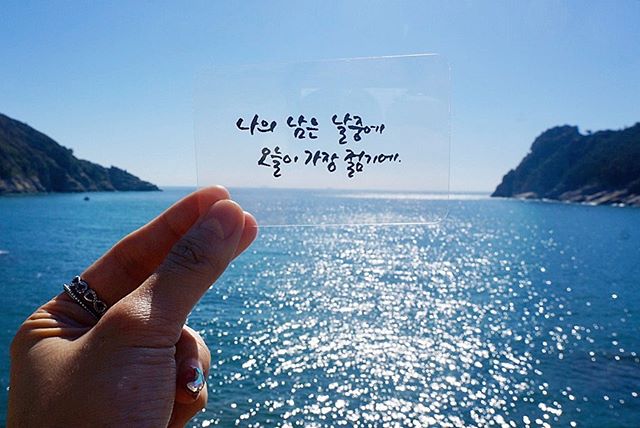 나의 남은 날중에
오늘이 가장 젊기에.